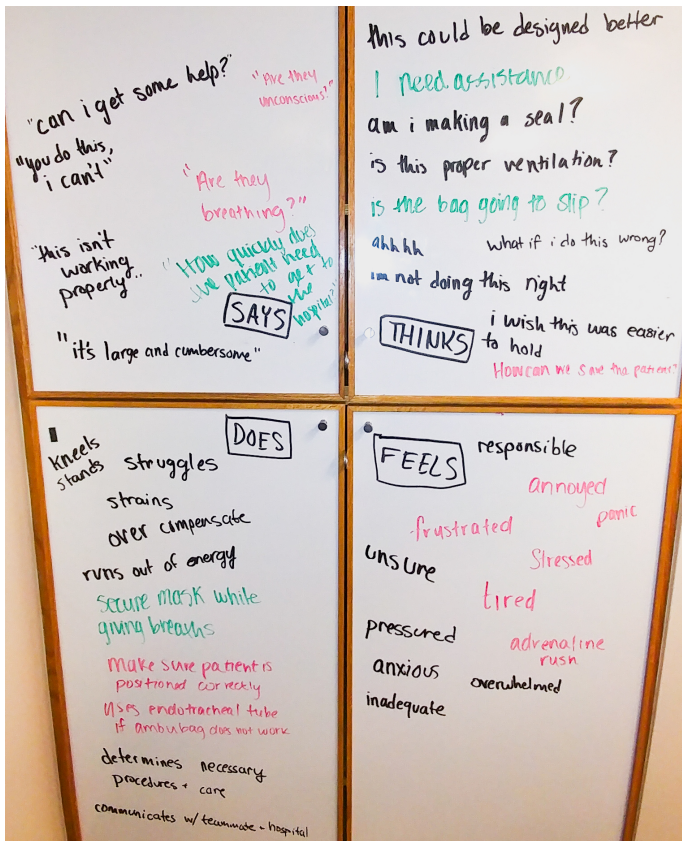 "can i get some help?"
"Are they
unconscious?"
"you do this,
i can't"
"Are they
breathing?"
"this isn't
working
properly..
"How quickly does
the patient need
to get to
the
hospital?"
SAYS
"it's large and cumbersome"
this could be designed better
I need assistance
am i making a seal?
is this proper ventilation?
is the bag going to slip?
ahhhh
what if i do this wrong?
im not doing this right
THINKS
i wish this was easier
to hold
How can we save tha patient?
DOES
kneels
stands
struggles
strains
over compensate
runs out of energy
secure mask while
giving breaths
make sure patient is
positioned correctly
uses endotracheal tube
if ambubag does not work
determines necessary
procedures + care
communicates w/ teammate + hospital
FEELS
responsible
annoyed
panic
frustrated
unsure
Stressed
tired
pressured
adrenaline
rush
anxious
overwhelmed
inadequate